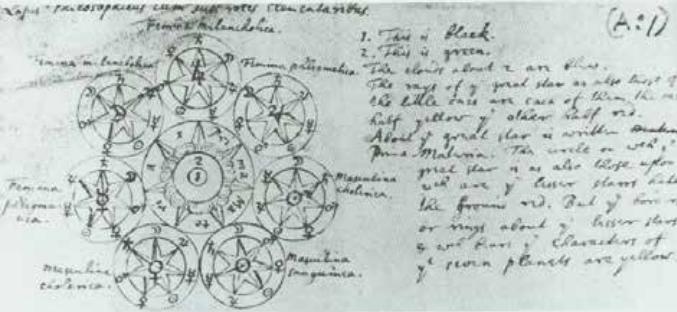 Lapis Philosophicus cum suis rotis elementaribus.
Femina melancholica.
Femina melancholica
Femina phlegmatica.
Femina phlegmatica.
Masculina cholerica.
Masculina cholerica.
Masculina sanguinea.
prima materia
1
2
(A:1)
1. This is black.
2. This is green.
The clouds about 2 are blue.
The rays of yͤ great star as also those of
the little ones are each of them the one
half yellow yͤ other half red.
About yͤ great star is written
Prima Materia. The circle on wch yͤ
great star is as also those upon
wch are yͤ lesser starrs have
the ground red. But yͤ
or rings about yͤ lesser stars
wch bears yͤ characters of
yͤ seven planets are yellow.